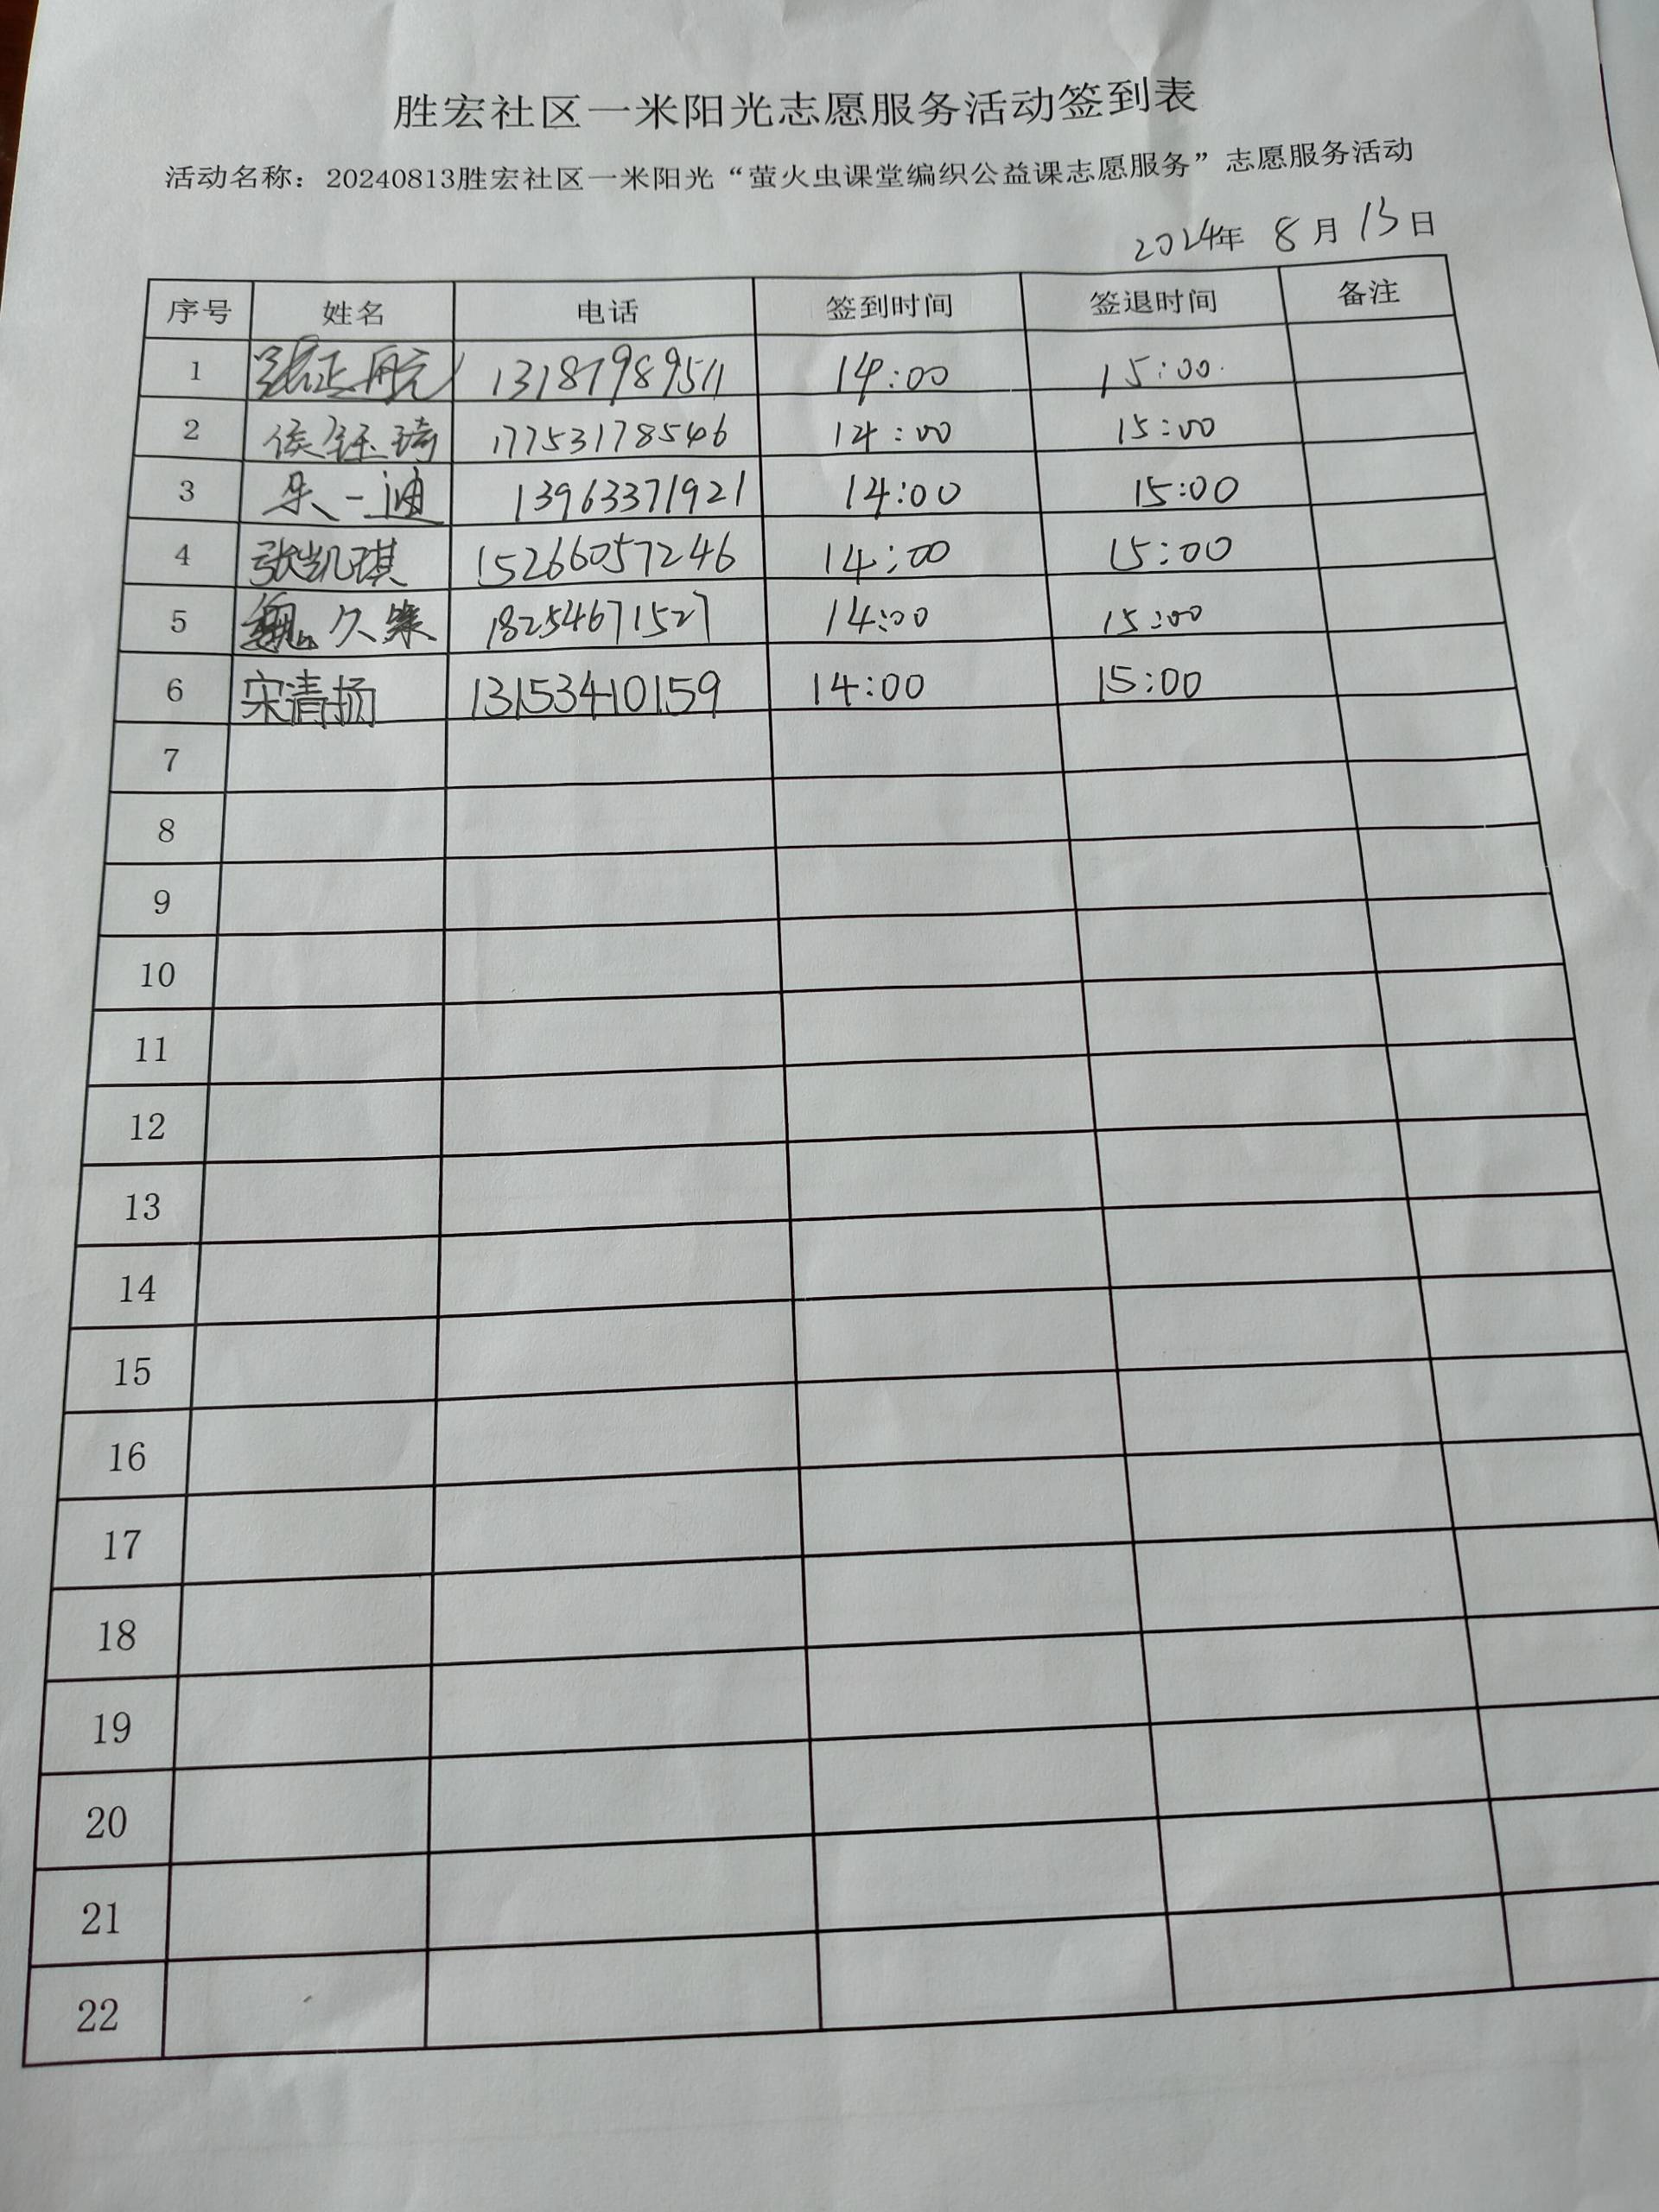 胜宏社区一米阳光志愿服务活动签到表
活动名称：20240813胜宏社区一米阳光“萤火虫课堂编织公益课志愿服务”志愿服务活动
2024年 8月13日
序号 姓名 电话 签到时间 签退时间 备注
1 张正航 13187989511 14:00 15:00
2 侯钰琦 17753178546 14:00 15:00
3 朱一迪 13963371921 14:00 15:00
4 张凯琪 15266057246 14:00 15:00
5 魏久 18254671527 14:00 15:00
6 宋清扬 13153410159 14:00 15:00
7
8
9
10
11
12
13
14
15
16
17
18
19
20
21
22